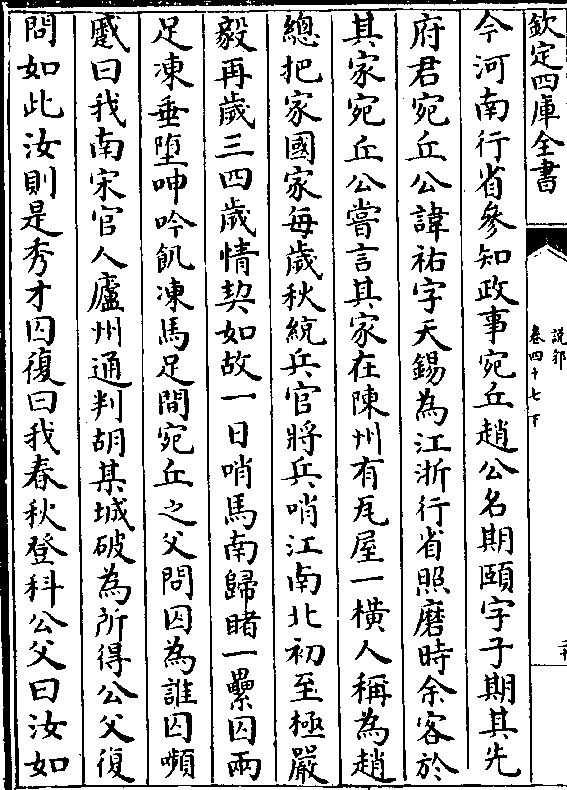 欽定四庫全書
說郛
卷四十七下
今河南行省參知政事宛丘趙公名期頤字子期其先
府君宛丘公諱祐字天錫為江浙行省照磨時余客於
其家宛丘公嘗言其家在陳州有瓦屋一横人稱為趙
總把家國家每歲秋統兵官將兵哨江南北初至極嚴
毅再歲三四歲情契如故一日哨馬南歸睹一纍囚兩
足凍垂墮呻吟飢凍馬足間宛丘之父問囚為誰囚嚬
蹙曰我南宋官人廬州通判胡某城破為所得公父復
問如此汝則是秀才囚復曰我春秋登科公父曰汝如